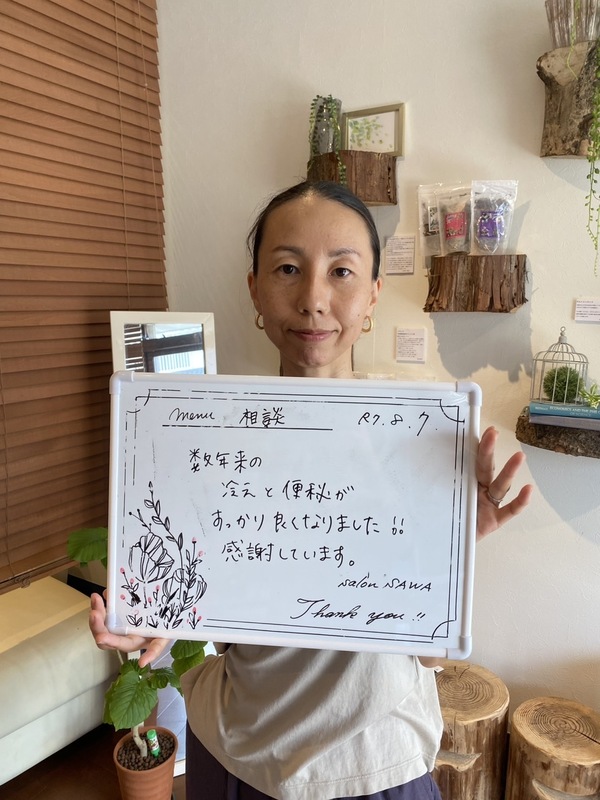 menu 相談 R7.8.7.
数年来の
冷えと便秘が
すっかり良くなりました!!
感謝しています。
salon SAWA
Thank you!!